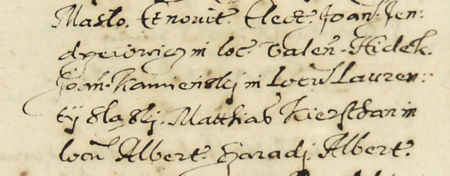 Masło. Et novit̃ Elect. Joan. Jen:
drzeiowicz in loc̃ Valeñ. Hidek.
Joan. Kamieński in Locũ Lauren:
tij Sląski. Matthias Kierschan in
locũ Albert. Albert.